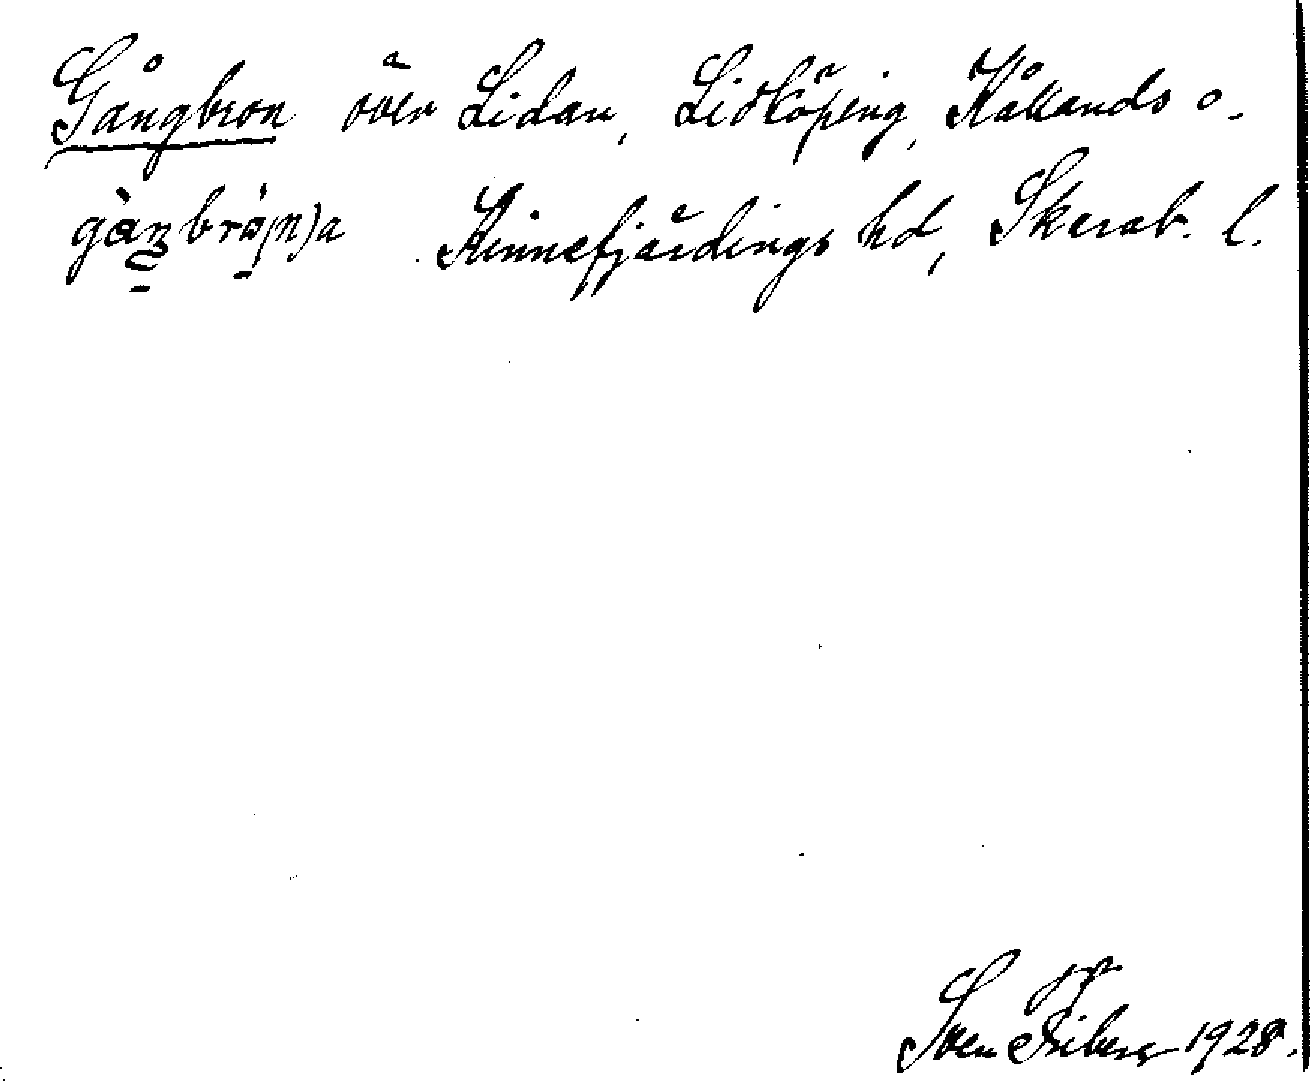 Gångbron över Lidan, Lidköping, Kållands o.
gàŋbrò(n)a Kinnefjärdings hd, Skarab. l.
Sven Friberg 1928.